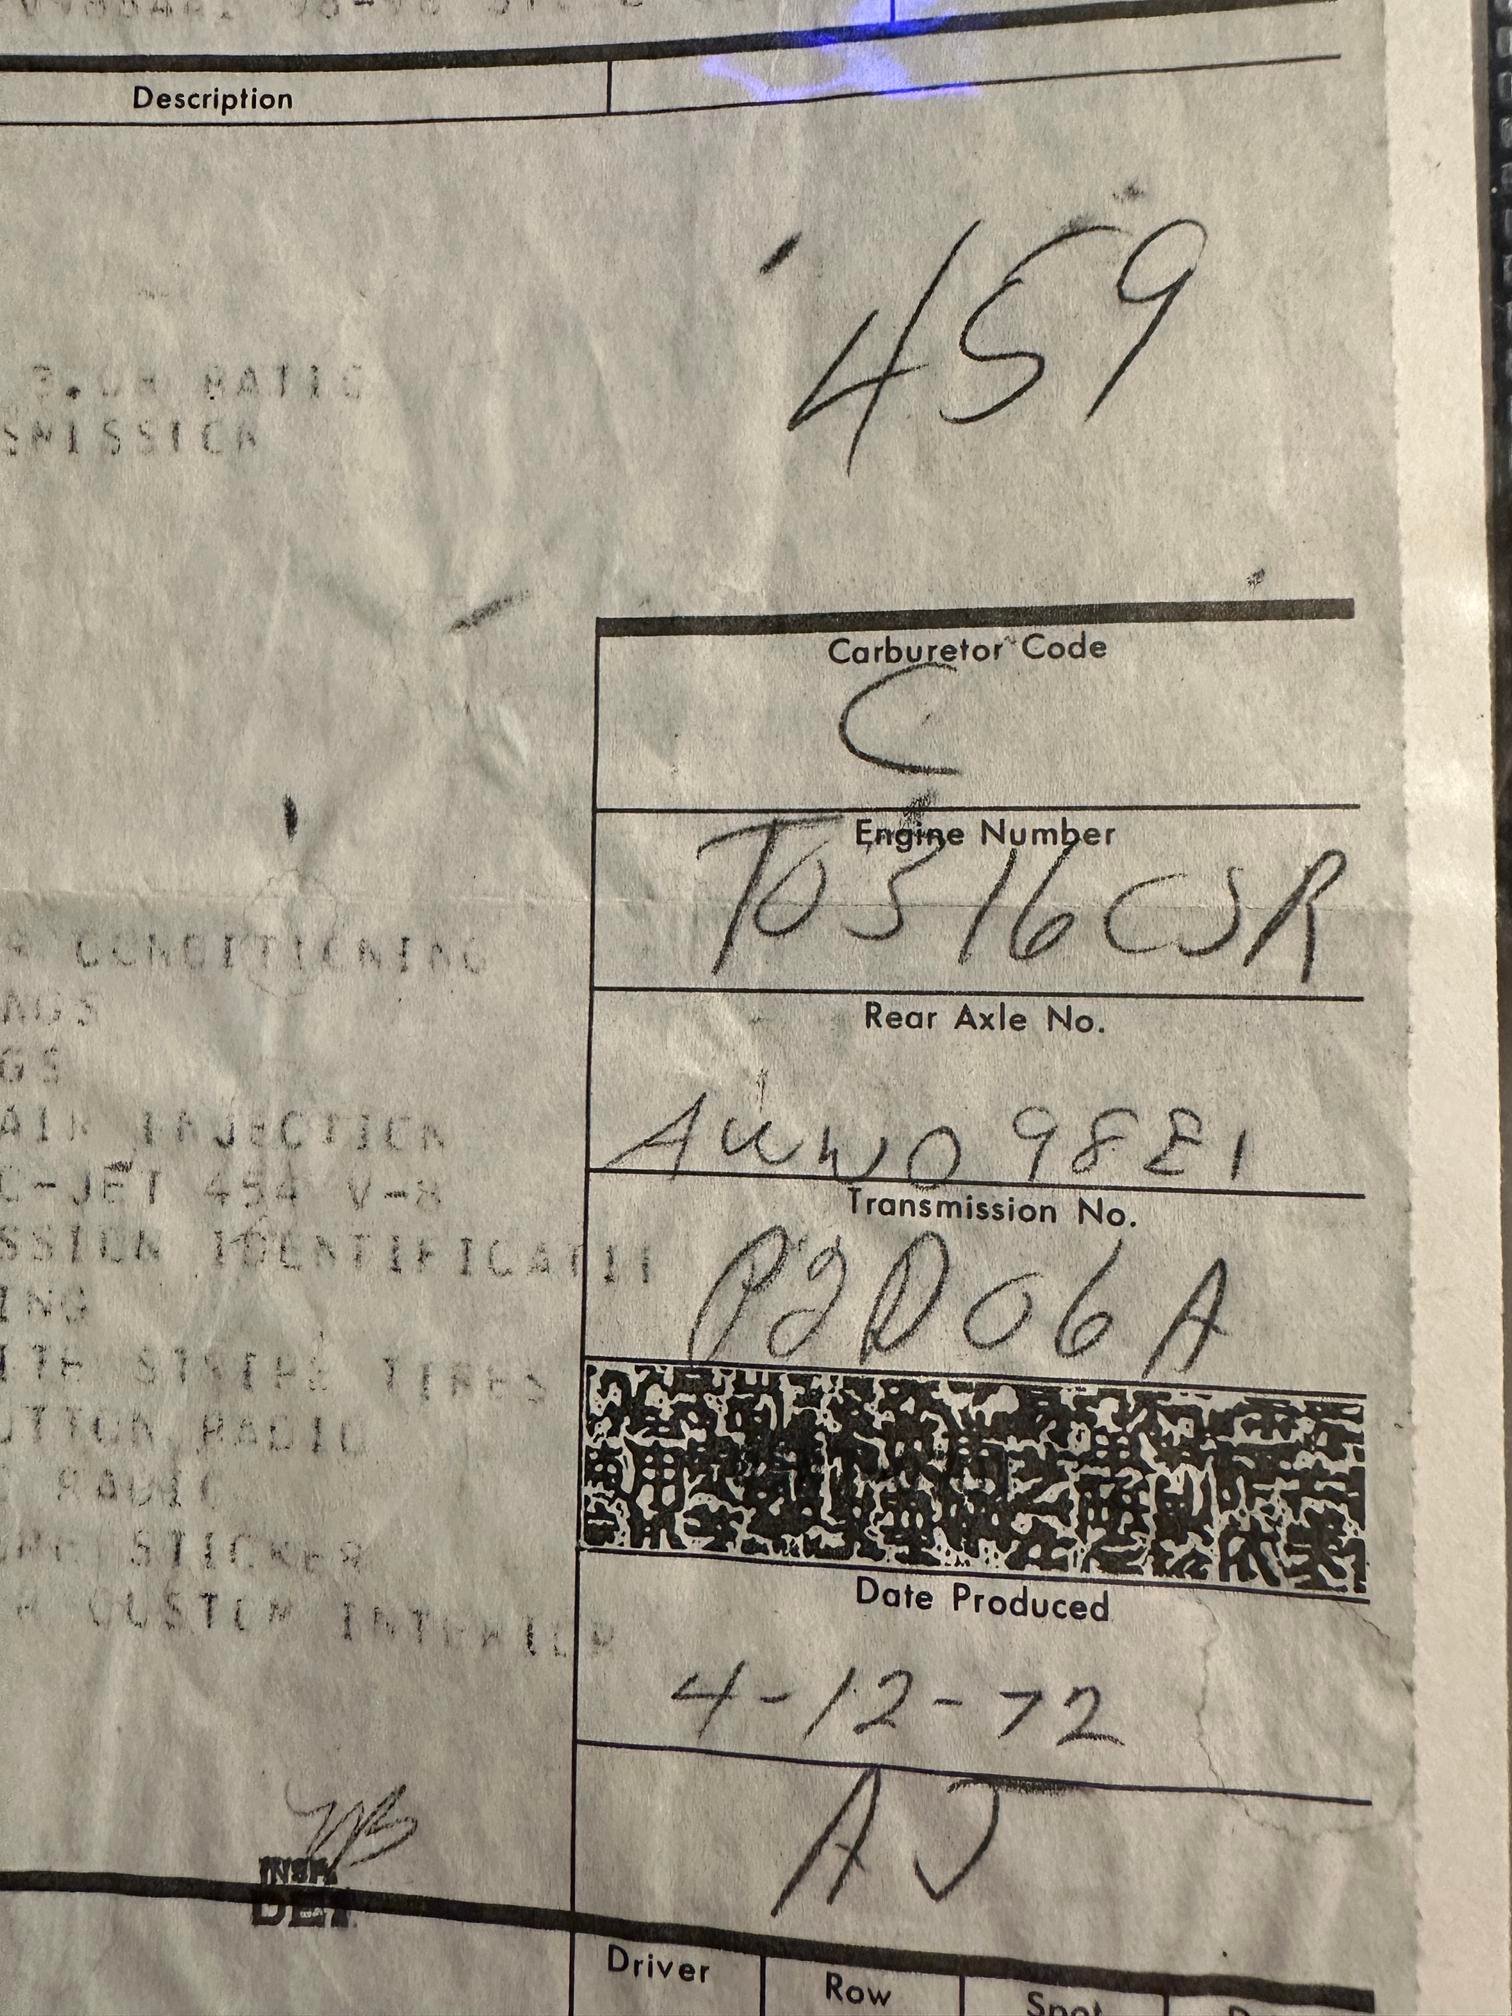 Description
459
3.08 RATIO
SMISSION
Carburetor Code
C
Engine Number
T0316CSR
R CONDITIONING
Rear Axle No.
NGS
GS
AIR INJECTION
AWW098E1
C-JET 454 V-8
Transmission No.
SSION IDENTIFICATI
P2D06A
ING
ITE STRIPE TIRES
UTTON RADIO
RADIO
STICKER
Date Produced
R CUSTOM INTERIOR
4-12-72
AJ
INSP.
DET
Driver
Row
Spot